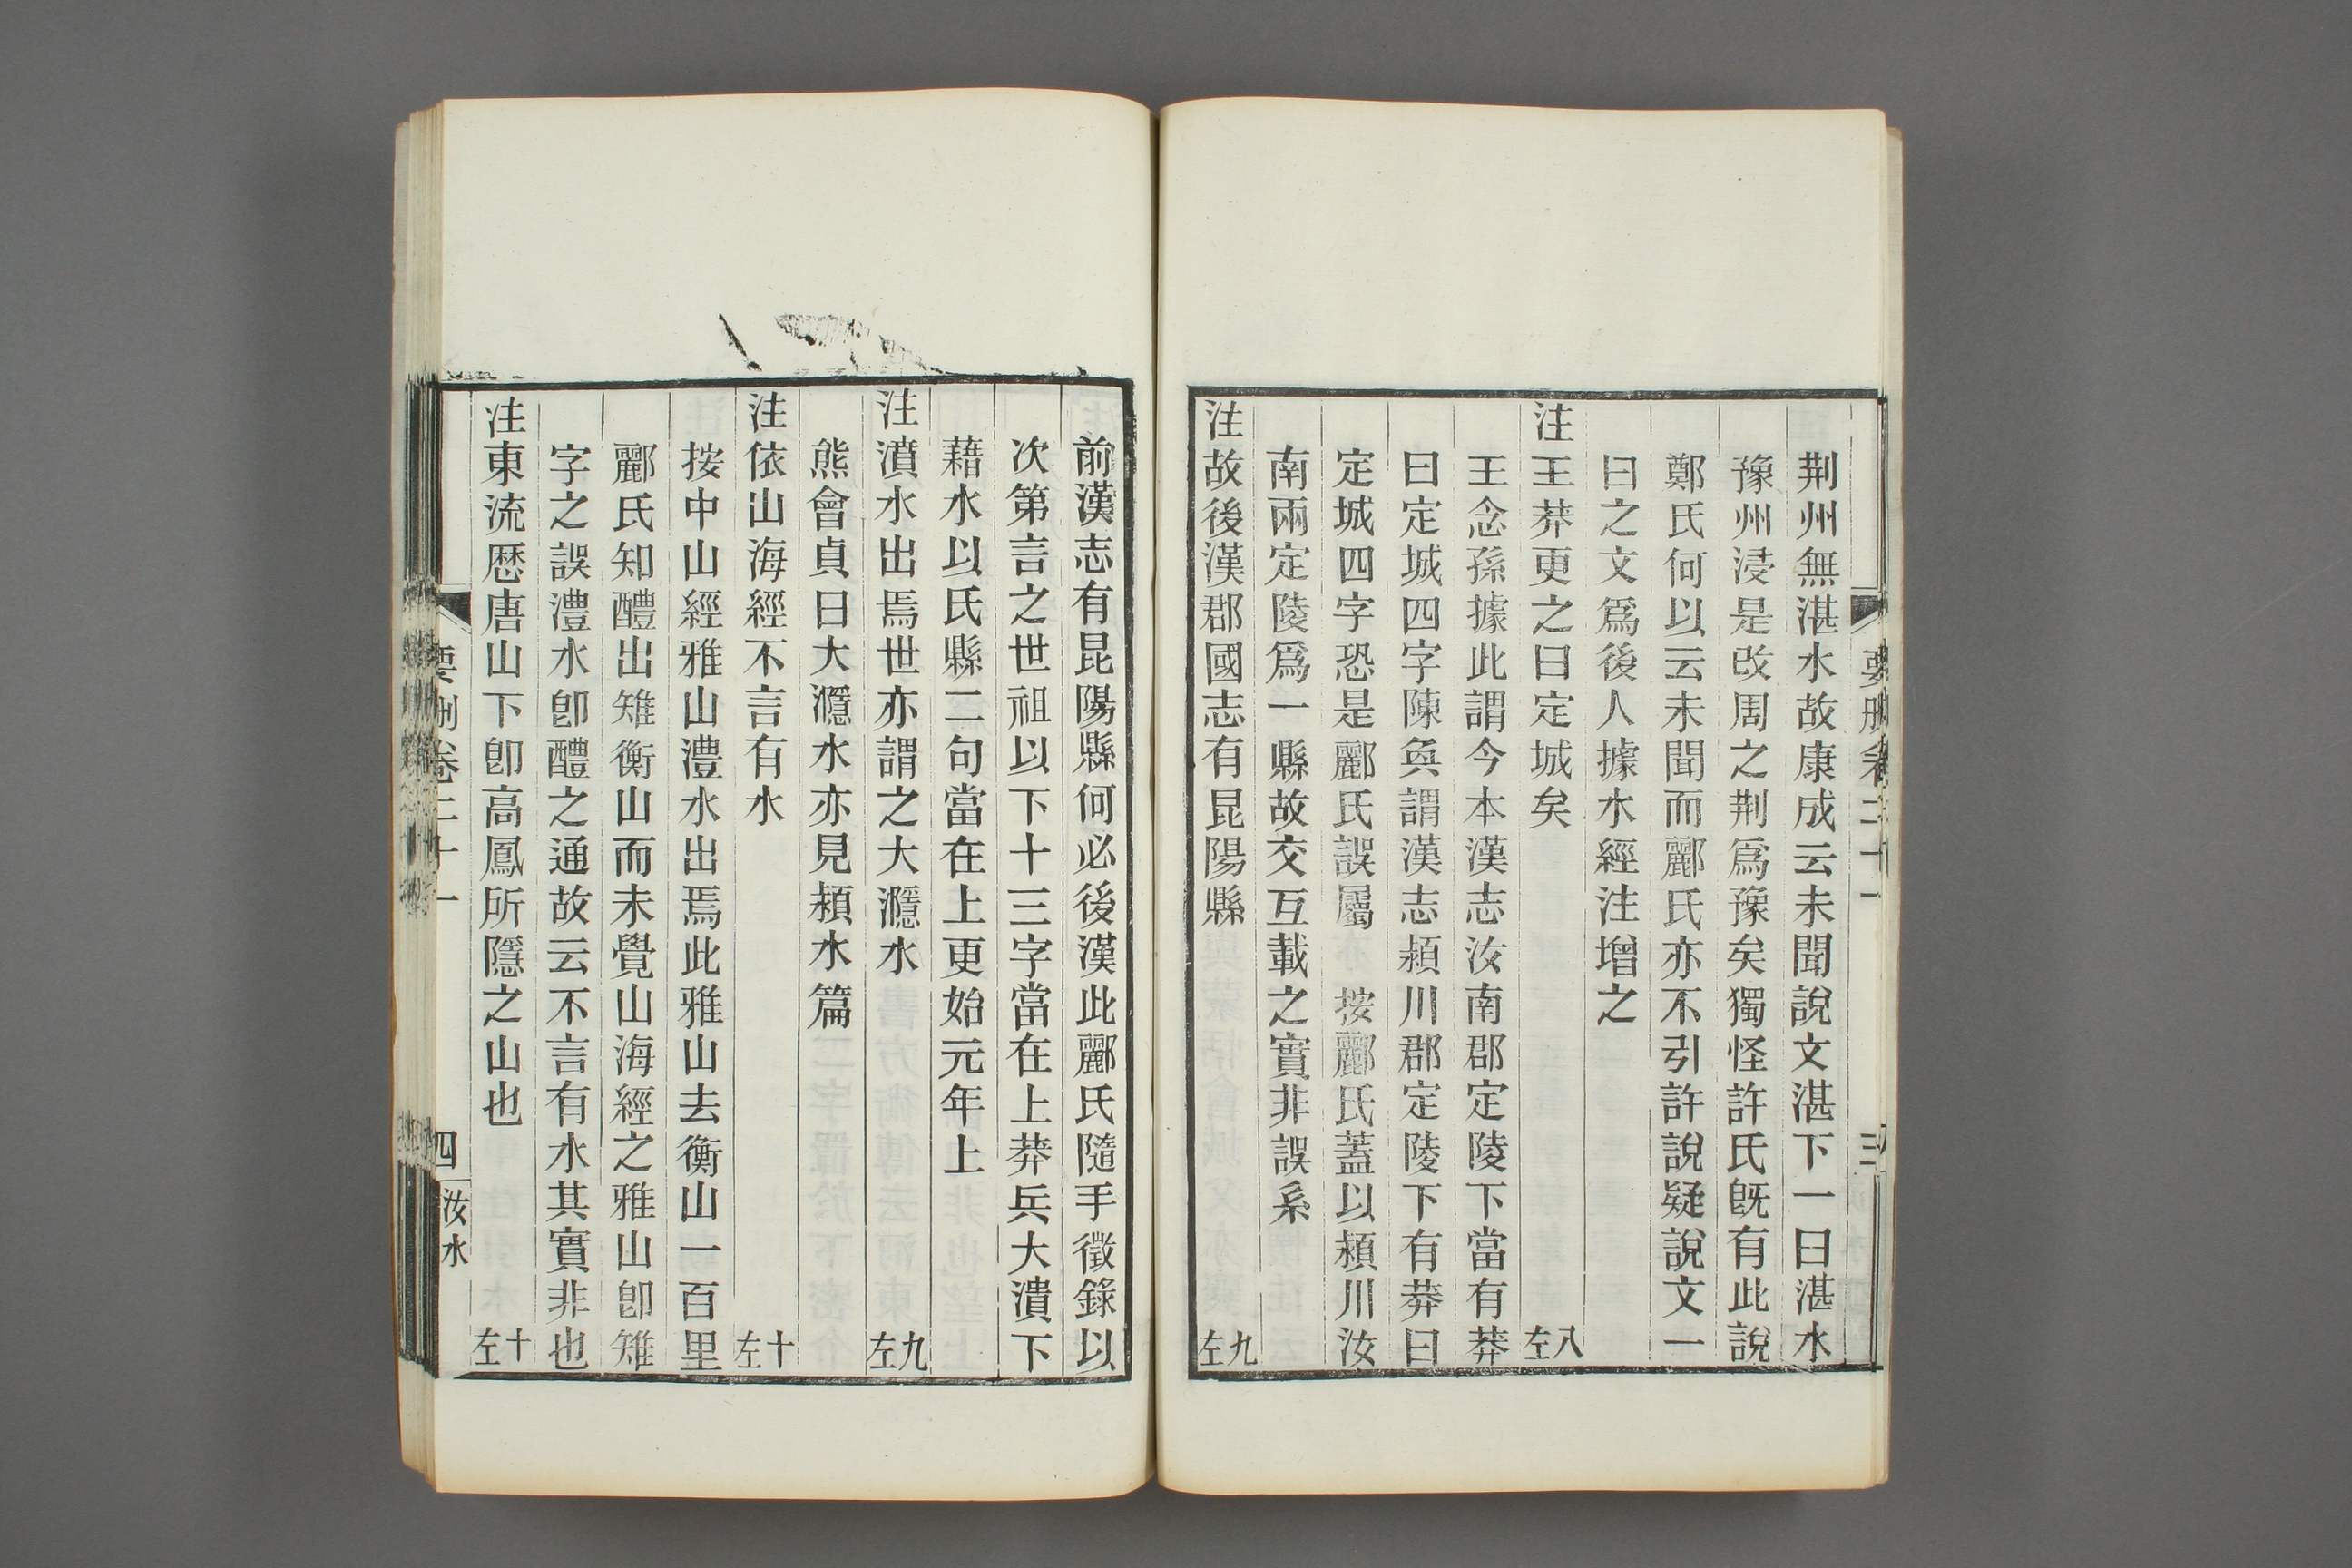 要刪卷二十一
三
荆州無湛水故康成云未聞說文湛下一曰湛水
豫州浸是改周之荆爲豫矣獨怪許氏旣有此說
鄭氏何以云未聞而酈氏亦不引許說疑說文一
曰之文爲後人據水經注增之
注王莽更之曰定城矣
八左
王念孫據此謂今本漢志汝南郡定陵下當有莽
曰定城四字陳奐謂漢志潁川郡定陵下有莽曰
定城四字恐是酈氏誤屬 按酈氏蓋以潁川汝
南兩定陵爲一縣故交互載之實非誤系
注故後漢郡國志有昆陽縣
九左
前漢志有昆陽縣何必後漢此酈氏隨手徵錄以
次第言之世祖以下十三字當在上莽兵大潰下
藉水以氏縣二句當在上更始元年上
注濆水出焉世亦謂之大㶏水
九左
熊會貞曰大㶏水亦見潁水篇
注依山海經不言有水
十左
按中山經雅山澧水出焉此雅山去衡山一百里
酈氏知醴出雉衡山而未覺山海經之雅山卽雉
字之誤澧水卽醴之通故云不言有水其實非也
注東流歷唐山下卽高鳳所隱之山也
十左
要刪卷二十一
四
汝水